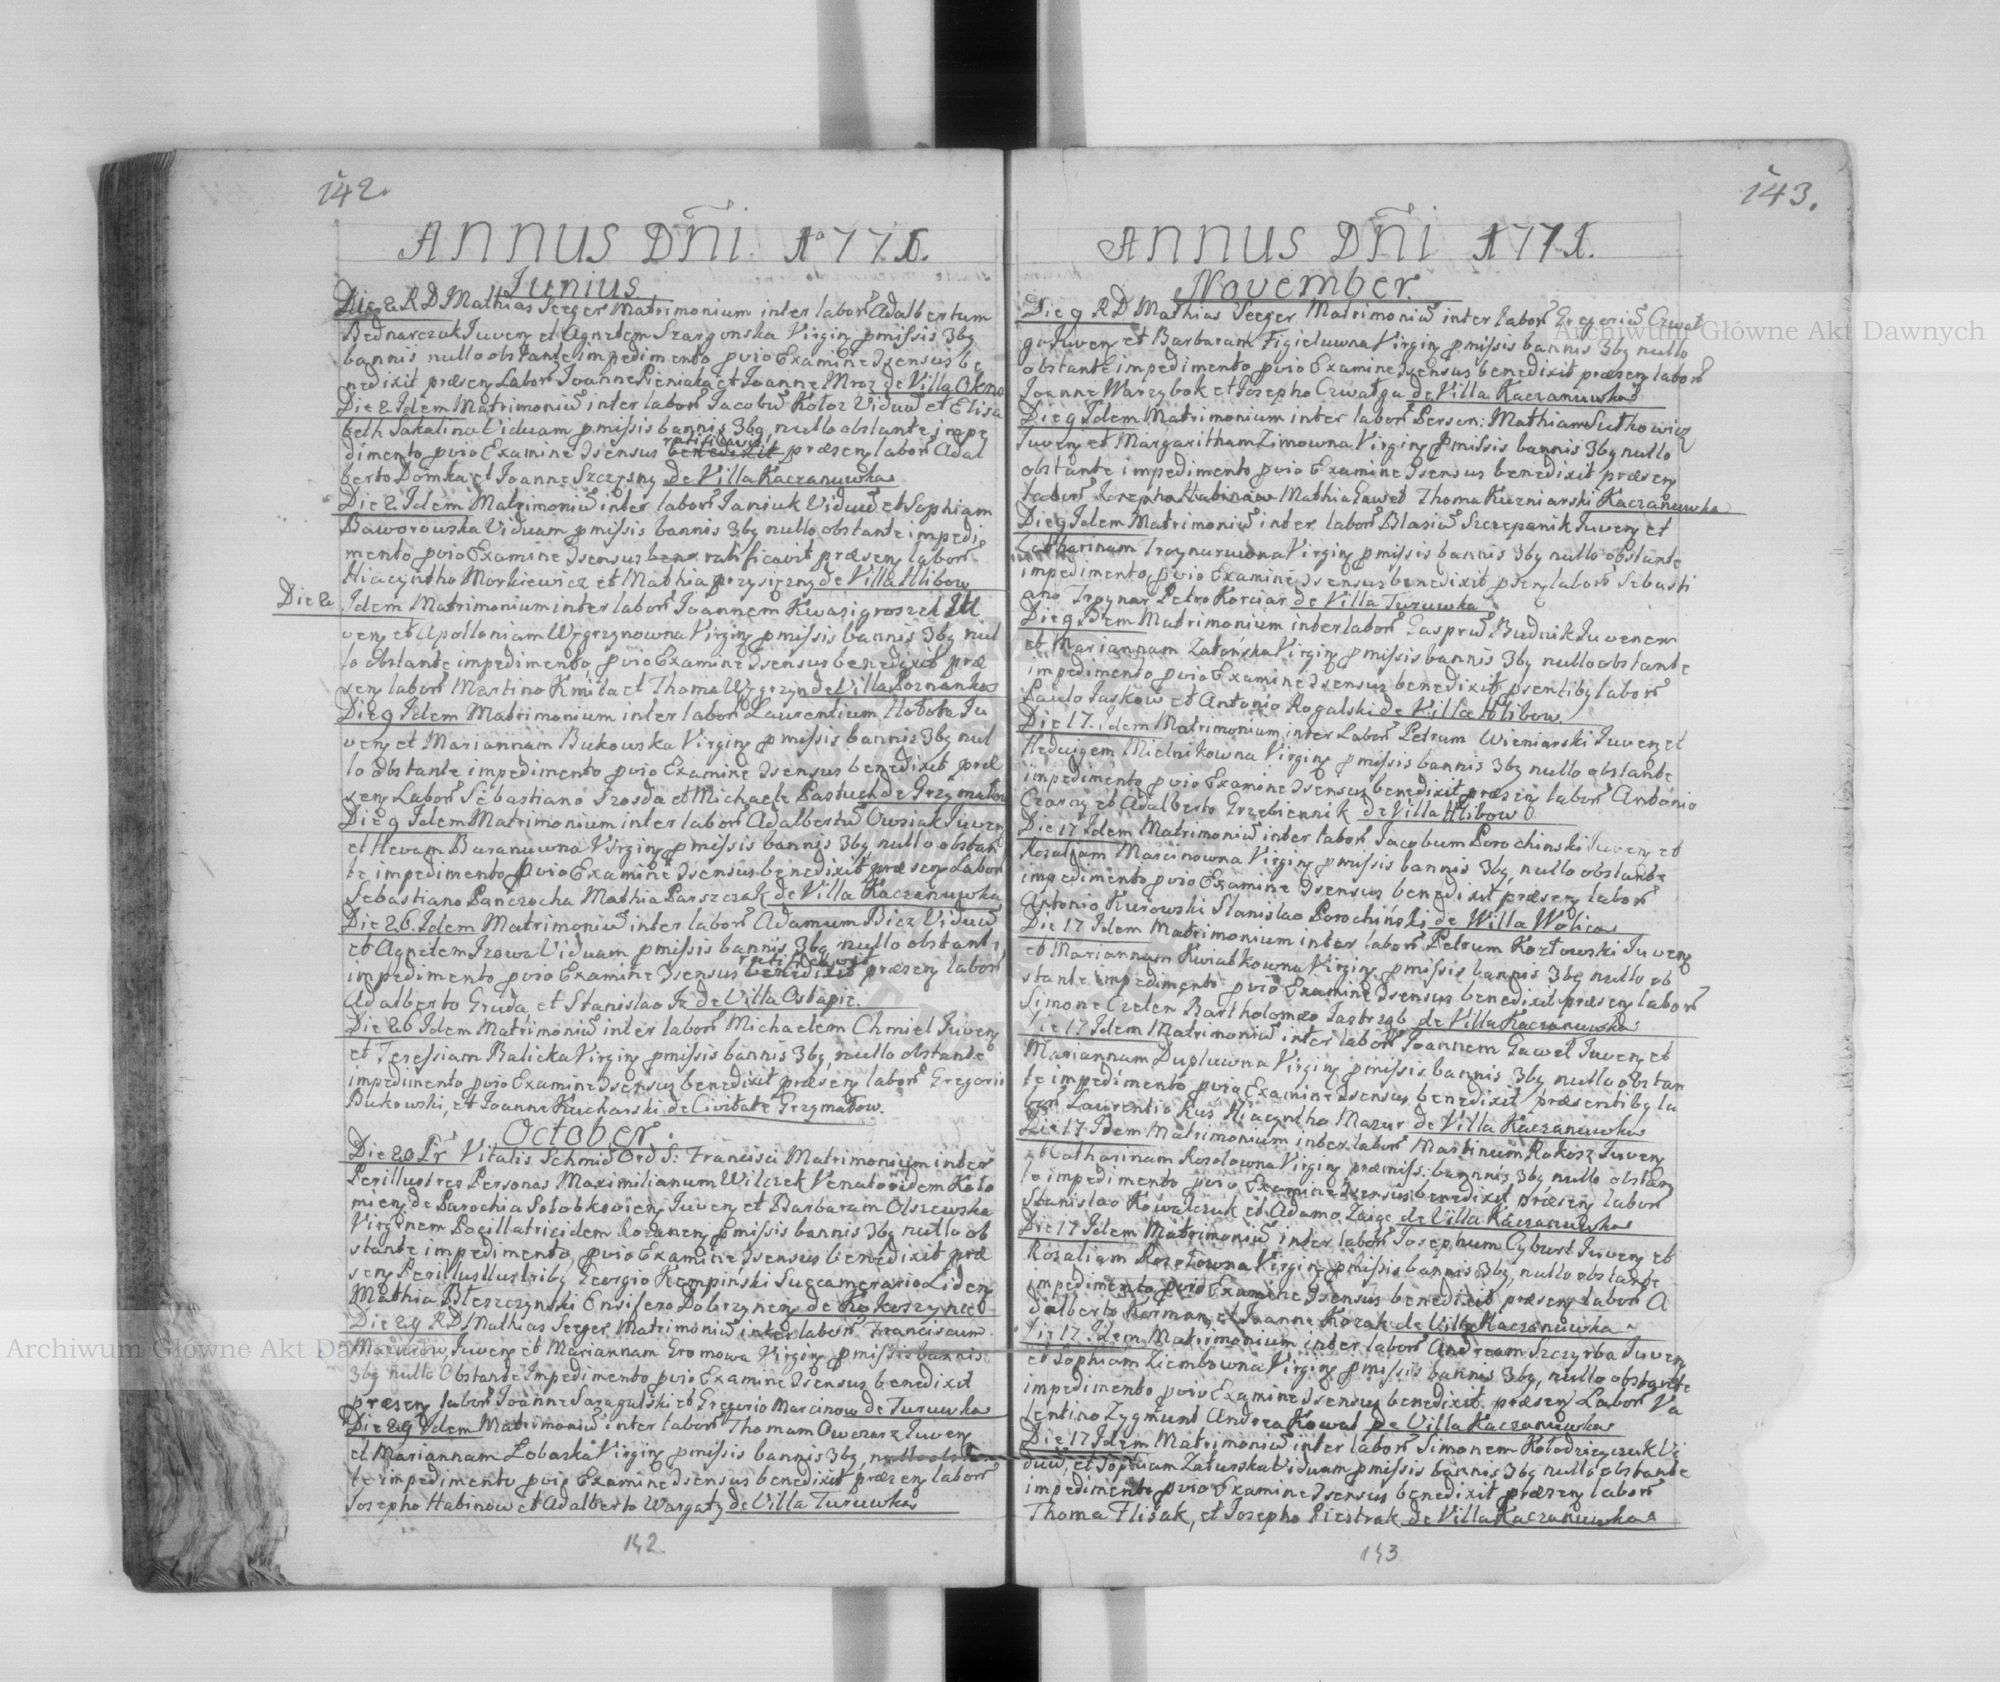 142.
ANNUS DñI. 1771.
Junius.
Die 2 RD Mathias Seeger Matrimonium inter labor Adalbertum
Bednarczuk Juven et Agnetem Szargonska Virgin pmissis 3bq
bannis nullo obstante impedimento pvio Examine Jsensus be
nedixit præsen Labor Joanne Pieniaka et Joanne Mroz de Villa Okno
Die 2 Idem Matrimoniu inter labor Jacobu Kołoz Viduu et Elisa
beth Sakalina Viduam pmissis bannis 3bq nullo obstante impe
dimento pvio Examine Jsensus benedixit ratificavit præsen labor Adal
berto Domka et Joanne Szczęsny de Villa Kaczanuwka
Die 2 Idem Matrimoniu inter labor Janiuk Viduu et Sophiam
Baworowska Viduam pmissis bannis 3bq nullo obstante impedi
mento pvio Examine Jsensus ratificavit præsen labor
Hiacyntho Morkiewicz et Mathia przysięzny de Villa Hlibow
Die 2 Idem Matrimonium inter labor Joannem Kwasigroszek Iu
ven et Apolloniam Węgrzynowna Virgin pmissis bannis 3bq nul
lo obstante impedimento, pvio Examine Jsensus benedixit præ
sen labor Martino Kmita et Thoma Węgrzyn de Villa Poznanka
Die 9 Idem Matrimonium inter labor Laurentium Hołota Ju
ven et Mariannam Bukowska Virgin pmissis bannis 3bq nul
lo obstante impedimento pvio Examine Jsensus benedixit præ
sen Labor Sebastiano Szosda et Michaele Pastuch de Grzymałow
Die 9 Idem Matrimonium inter labor Adalbertu Owsiak Juven
et Hevam Buranuwna Virgin pmissis bannis 3bq nullo obstan
te impedimento pvio Examine Jsensus benedixit præsen Labor
Sebastiano Panczocha Mathia Parszczak de Villa Kaczanuwka
Die 26. Idem Matrimoniu inter labor Adamum Bicz Viduu
et Agnetem Izowa Viduam pmissis bannis 3bq nullo obstante
impedimento pvio Examine Jsensus benedixit ratificavit præsen labor
Adalberto Gruda et Stanislao Jż de Villa Ostapie.
Die 26 Idem Matrimoniu inter labor Michaelem Chmiel Juven
et Teressiam Balicka Virgin pmissis bannis 3bq nullo obstante
impedimento pvio Examine Jsensus benedixit præsen labor Gregorio
Bukowski, et Joanne Kucharski de Civitate Grzymałow.
October.
Die 20 Pr Vitalis Schmid Ord S: Francisci Matrimonium inter
Perillustres Personas Maximilianum Wilczek Venatoridem Koło
mien de Parochia Sołobkovien Juven et Barbaram Olszewska
Virginem Pocillatricidem Rożanen pmissis bannis 3bq nullo ob
stante impedimento, pvio Examine Jsensus benedixit præ
sen Perillusllustribq Georgio Kempiński Succamerario Liden
Mathia Błeszczynski Ensifero Dobrzynen de Kokoszynce
Die 29 RD Mathias Seeger Matrimoniu inter labor Franciscum
Mazurow Juven et Mariannam Gromowa Virgin pmissis bannis
3bq nullo Obstante Impedimento pvio Examine Jsensus benedixit
præsen labor Joanne Saragulski et Gregorio Marcinow de Turuwka
Die 29 Idem Matrimoniu inter labor Thomam Owczarz Juven
et Mariannam Lobazka Virgin pmissis bannis 3bq, nullo obstan
te impedimento pvio Examine Jsensus benedixit præsen labor
Josepho Habinow et Adalberto Wargatz de Villa Turuwka
142
143.
ANNUS DñI 1771.
November.
Die 9 RD Mathias Seeger Matrimoniu inter labor Gregoriu Czwał
go Juven et Barbaram Figieluwna Virgin pmissis bannis 3bq nullo
obstante impedimento pvio Examine Jsensus benedixit præsen labor
Joanne Warzybok et Josepho Czwałga de Villa Kaczanuwka
Die 9 Idem Matrimonium inter labor Person: Mathiam Sutkowicz
Juven et Margaritham Zimowna Virgin pmissis bannis 3bq nullo
obstante impedimento pvio Examine Jsensus benedixit præsen
labor Josepho Habinow Mathia Gaweł Thoma Kuzniarski Kaczanuwka
Die 9 Idem Matrimoniu inter labor Blasiu Szczepanik Juven et
Catharinam Troynaruwna Virgin pmissis bannis 3bq nullo obstante
impedimento, pvio Examine Jsensus benedixit psen labor Sebasti
ano Troynar Petro Korciar de Villa Turuwka
Die 9 Idem Matrimonium inter labor Gaspru Budnik Juvenem
et Mariannam Zatońska Virgin pmissis bannis 3bq nullo obstante
impedimento pvio Examine Jsensus benedixit psentibq labor
Paulo Jaskow et Antonio Rogalski de Villa Hlibow.
Die 17. Idem Matrimonium inter Labor Petrum Wieniarski Juven et
Hedvigem Mielnikowna Virgin pmissis bannis 3bq nullo obstante
impedimento pvio Examine Jsensus benedixit præsen labor Antonio
Czarny et Adalberto Grzebiennik de Villa Hlibow
Die 17 Idem Matrimoniu inter labor Jacobum Porochinski Juven et
Rozaliam Marcinowna Virgin pmissis bannis 3bq, nullo obstante
impedimento pvio Examine Jsensus benedixit præsen labor
Antonio Kurowski Stanislao Porochiński de Willa Wolica
Die 17 Idem Matrimonium inter labor Petrum Kozłowski Juven
et Mariannam Kwiatkowna Virgin pmissis bannis 3bq nullo ob
stante impedimento pvio Examine Jsensus benedixit præsen labor
Simone Czelen Bartholomæo Jastrząb de Villa Kaczanuwka
Die 17 Idem Matrimoniu inter labor Joannem Gaweł Juven et
Mariannam Dupluwna Virgin pmissis bannis 3bq nullo obstan
te impedimento pvio Examine Jsensus benedixit præsentibq la
bor Laurentio Kuś Hiacyntho Mazur de Villa Kaczanuwka
Die 17 Idem Matrimonium inter labor Martinum Rokosz Juven
et Catharinam Rosołowna Virgin præmiss: bannis 3bq nullo obstan
te impedimento pvio Examine Jsensus benedixit præsen labor
Stanislao Kowalczuk et Adamo Zaiąc de Villa Kaczanuwka
Die 17 Idem Matrimoniu inter labor Josephum Cyburt Juven et
Rozaliam Rozołowna Virgin pmissis bannis 3bq, nullo obstante
impedimento pvio Examine Jsensus benedixit præsen labor A
dalberto Korman, et Joanne Kozak de Villa Kaczanuwka
Die 17 Idem Matrimonium inter labor Andream Szczyrba Juven
et Sophiam Ziembowna Virgin pmissis bannis 3bq, nullo obstante
impedimento pvio Examine Jsensus benedixit præsen Labor Va
lentino Zygmunt Andrea Kowal de Villa Kaczanuwka
Die 17 Idem Matrimoniu inter labor Simonem Kołodzieyczuk Vi
duu, et Sophiam Zaturska Viduam pmissis bannis 3bq nullo obstante
impedimento pvio Examine Jsensus benedixit præsen labor
Thoma Flisak, et Josepho Piestrak de Villa Kaczanuwka
143
Archiwum Główne Akt Dawnych
Archiwum Główne Akt Dawnych